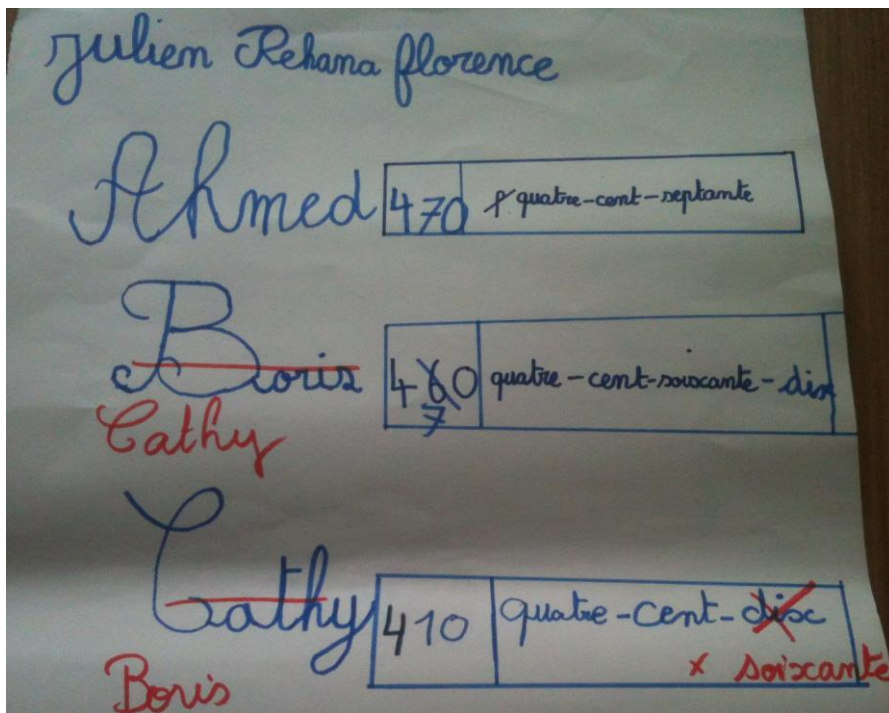 Julien Rehana florence
Ahmed 470 quatre-cent-septante
Boris 460 quatre-cent-soixante-dix
7
Cathy
Cathy 410 quatre-cent-dix
x soixante
Boris